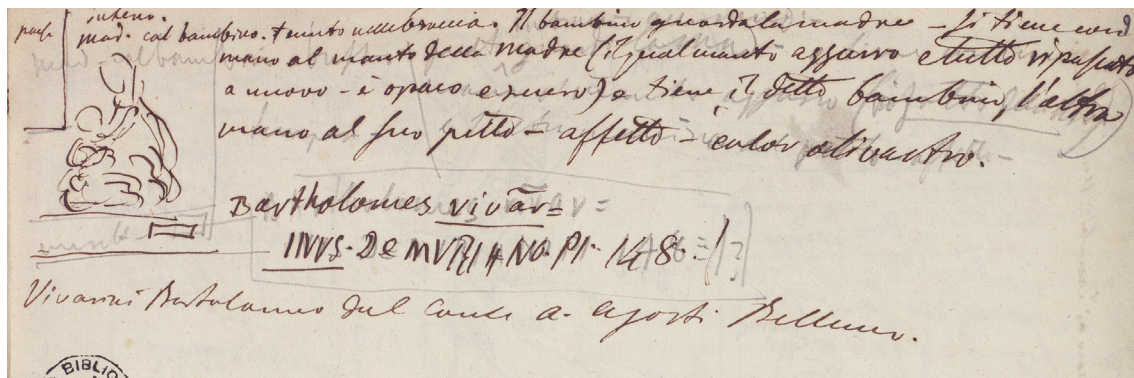 intero.
mad. col bambino. tenuto nelle braccia. Il bambino guarda la madre – si tiene con d
mano al manto della madre (il qual manto azzurro e tutto ripassato
a nuovo – è opaco e nero) e tiene il detto bambino, l'altra
mano al suo petto – affetto – color olivastro.
Bartholomes vivār=
INVS. De MVRIANO. PI. 148. = / ?
Vivarini Bartolomeo dal Conte A. Agosti Belluno.
BIBLIO